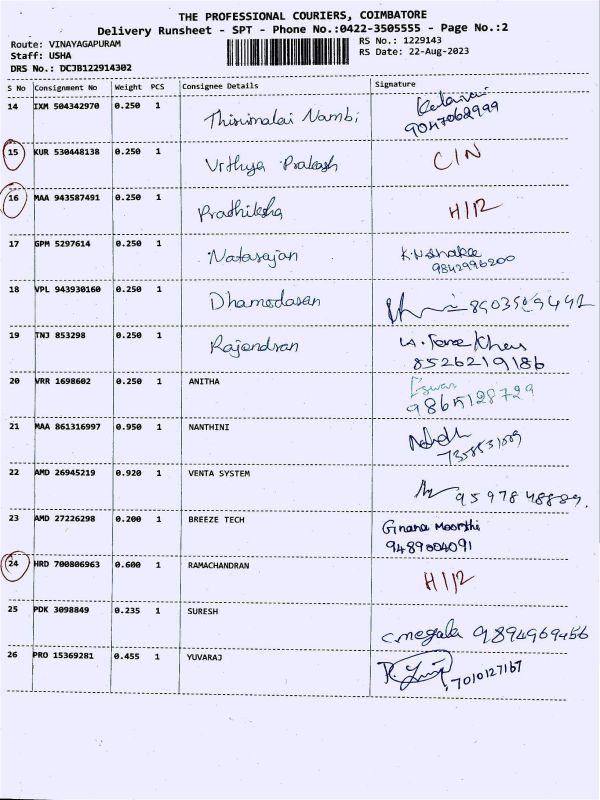 THE PROFESSIONAL COURIERS, COIMBATORE
Delivery Runsheet - SPT - Phone No.:0422-3505555 - Page No.:2
Route: VINAYAGAPURAM
Staff: USHA
DRS No.: DCJB122914302
RS No.: 1229143
RS Date: 22-Aug-2023
S No Consignment No Weight PCS Consignee Details Signature
14 IXM 504342970 0.250 1 Thirumalai Nambi
9047062999
15 KUR 530448138 0.250 1 Vrthya Prakash C/N
16 MAA 943587491 0.250 1 Pradhiksha H/12
17 GPM 5297614 0.250 1 Natarajan
9842996200
18 VPL 943930160 0.250 1 Dhamodaran
19 TNJ 853298 0.250 1 Rajendran
8526219186
20 VRR 1698602 0.250 1 ANITHA Eswari
9865128729
21 MAA 861316997 0.950 1 NANTHINI
22 AMD 26945219 0.920 1 VENTA SYSTEM
23 AMD 27226298 0.200 1 BREEZE TECH Gnana Moorthi
9489004091
24 HRD 700806963 0.600 1 RAMACHANDRAN H/12
25 PDK 3098849 0.235 1 SURESH
C.megala 9894969456
26 PRO 15369281 0.455 1 YUVARAJ
7010127167